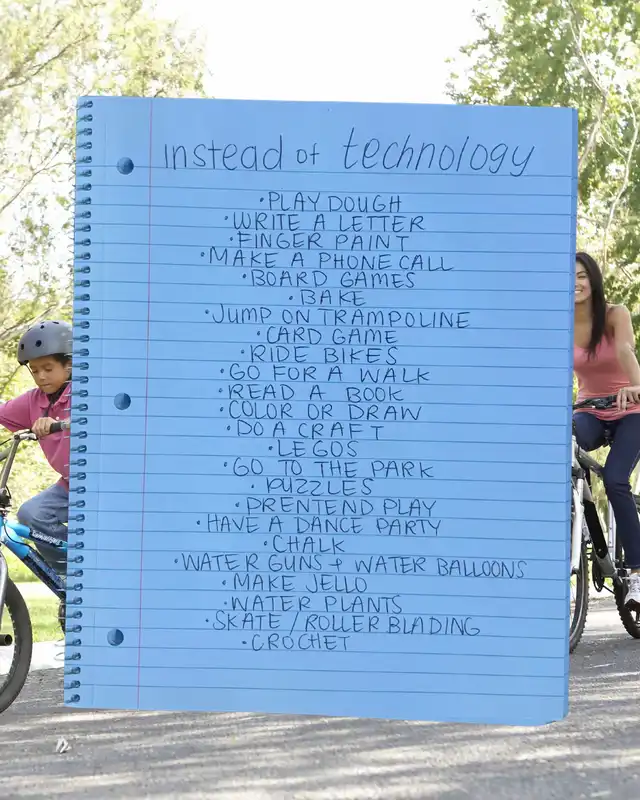 instead of technology
• PLAY DOUGH
• WRITE A LETTER
• FINGER PAINT
• MAKE A PHONE CALL
• BOARD GAMES
• BAKE
• JUMP ON TRAMPOLINE
• CARD GAME
• RIDE BIKES
• GO FOR A WALK
• READ A BOOK
• COLOR OR DRAW
• DO A CRAFT
• LEGOS
• GO TO THE PARK
• PUZZLES
• PRENTEND PLAY
• HAVE A DANCE PARTY
• CHALK
• WATER GUNS + WATER BALLOONS
• MAKE JELLO
• WATER PLANTS
• SKATE / ROLLER BLADING
• CROCHET